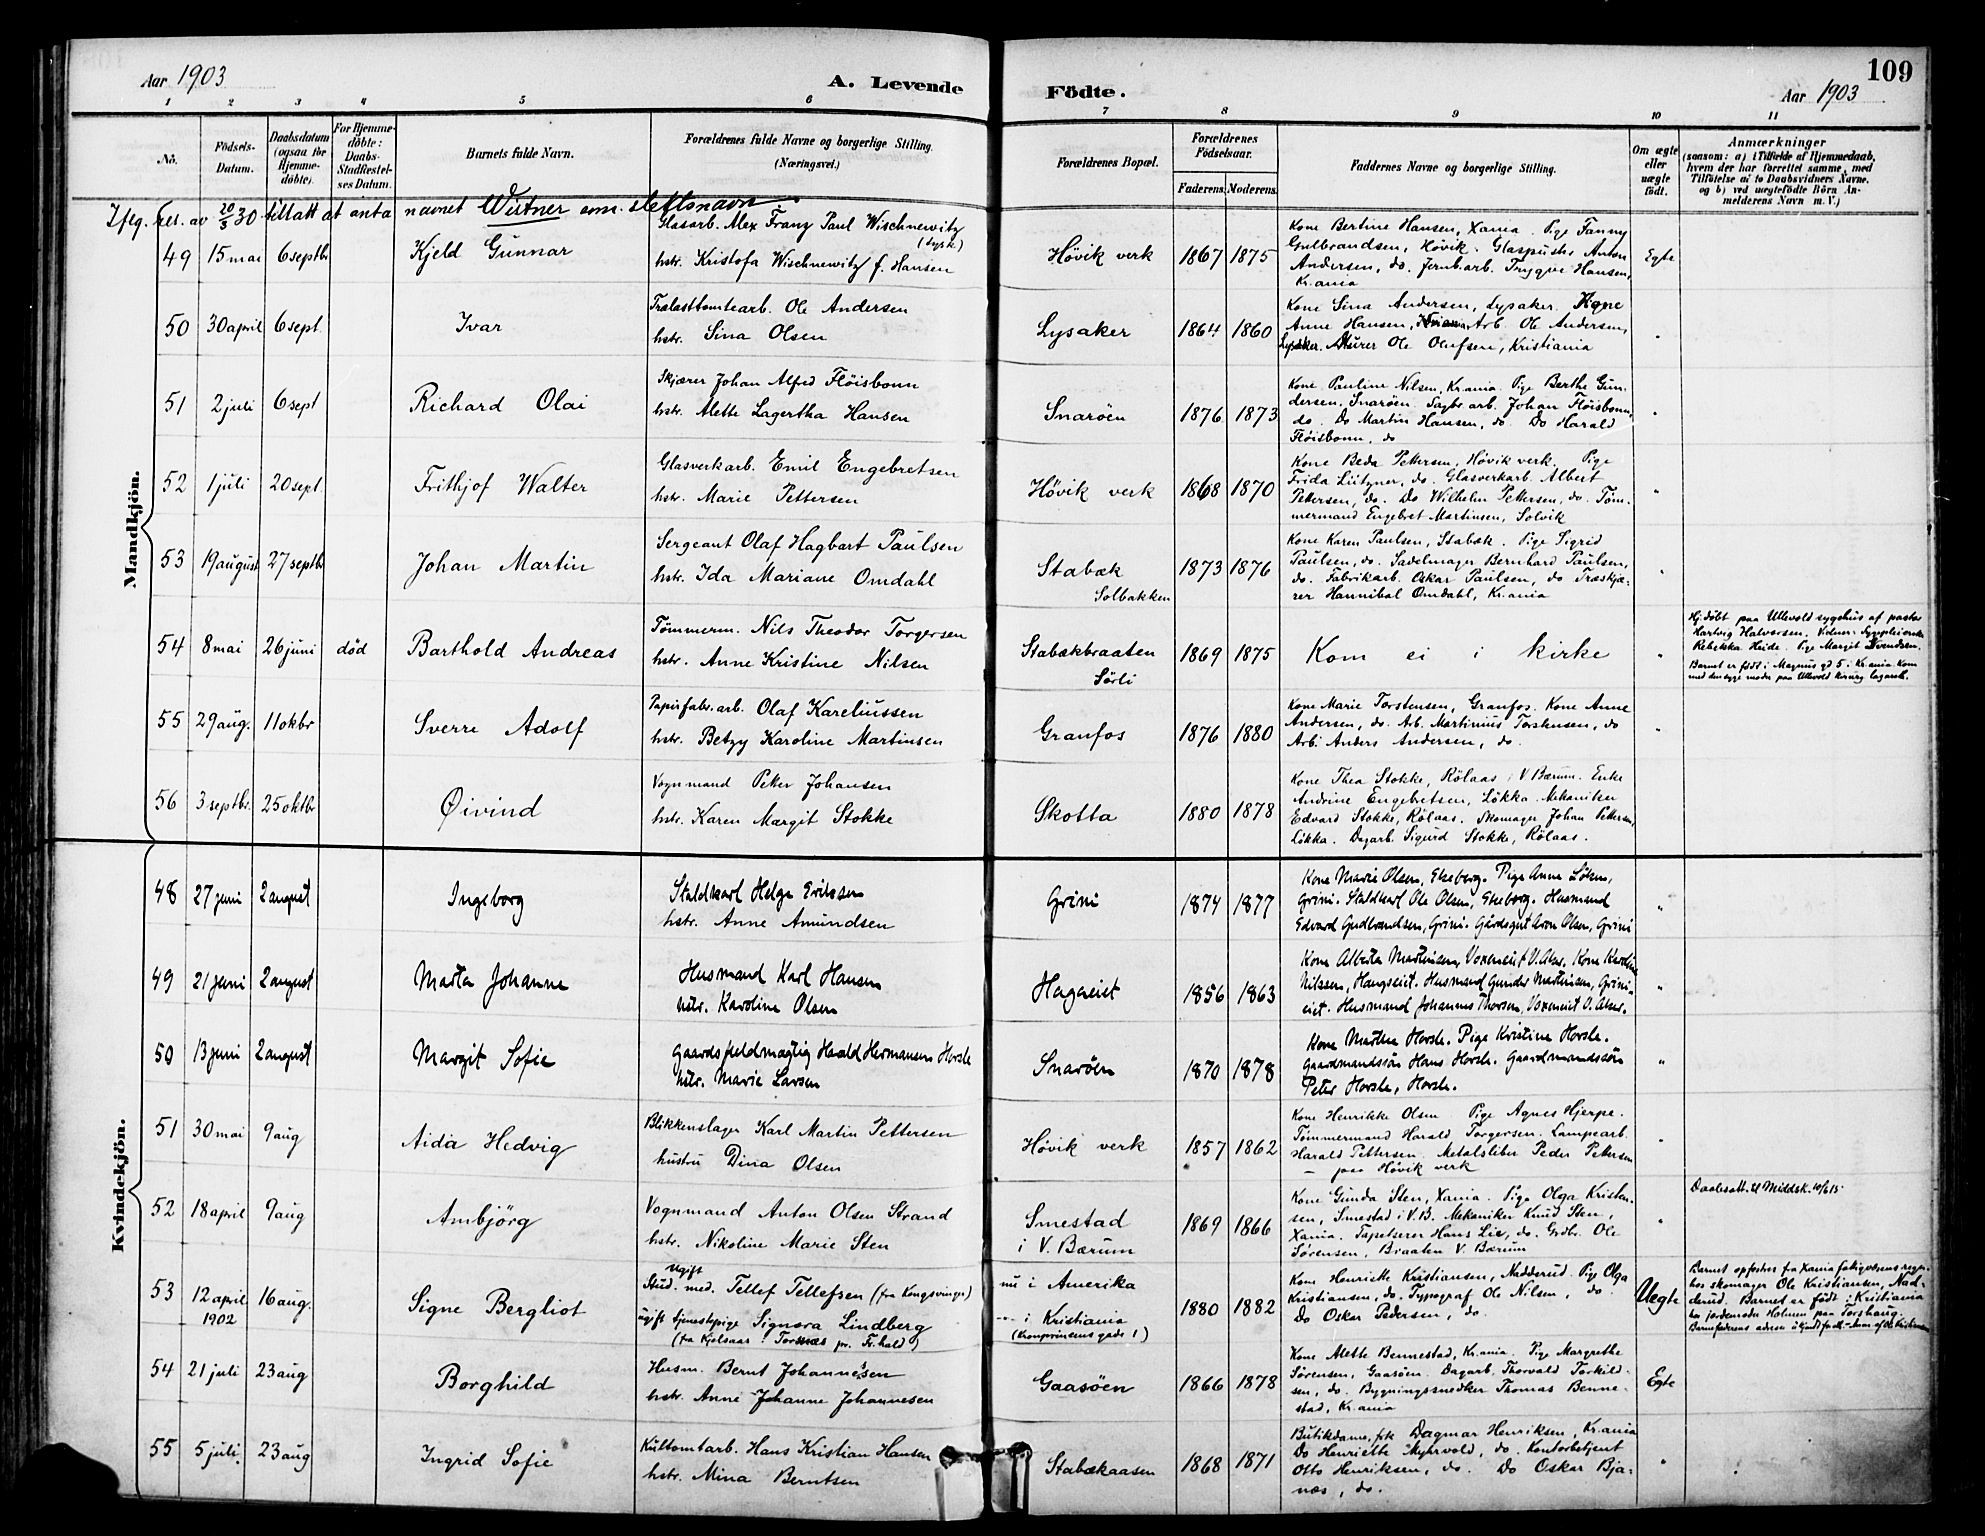 109
Aar 1903
A. Levende
Födte.
Aar 1903
1 2 3 4 5 6 7 8 9 10 11
No.
Födsels-Datum.
Daabsdatum (ogsaa for Hjemmedöbte).
For Hjemmedöbte: Daabs-Stadfæstelses Datum.
Barnets fulde Navn.
Forældrenes fulde Navne og borgerlige Stilling. (Næringsvei.)
Forældrenes Bopæl.
Forældrenes Födselsaar.
Faderens. Moderens.
Faddernes Navne og borgerlige Stilling.
Om ægte eller uægte født.
Anmærkninger
(saasom: a) i Tilfælde af Hjemmedaab,
hvem der har forrettet samme, med
Tilföielse af to Daabsvidners Navne,
og b) ved uægtefödte Börn An-
melderens Navn m. V.)
Mandkjön.
Iføg. res. av 20/3 30 tillatt at anta navnet Wütner som slektsnavn.
49 15 mai 6 septbr Kjeld Gunnar
Glasarb. Alex Franz Paul Wischnewitz (tysk)
hstr. Kristofa Wischnewitz f. Hansen
Høvik verk 1867 1875
Kone Bertine Hansen, Xania. Pige Fanny
Gulbrandsen, Høvik. Glaspuster Anton
Andersen, do. Jernb.arb. Trygve Hansen,
Kr.ania
Egte
50 30 april 6 sept. Ivar
Trælasttomtearb. Ole Andersen
hstr. Sina Olsen
Lysaker 1864 1860
Kone Sina Andersen, Lysaker. Kone
Anne Hansen, Arb. Ole Andersen,
Lysaker. Murer Ole Olufsen, Kristiania
"
51 2 juli 6 sept Richard Olai
Skjærer Johan Alfred Fløisbonn
hstr. Alette Lagertha Hansen
Snarøen 1876 1873
Kone Pauline Nilsen, Kr.ania. Pige Berthe Gun-
dersen, Snarøen. Sagbr.arb. Johan Fløisbonn,
do. Do Martin Hansen, do. Do Harald
Fløisbonn, do
"
52 1 juli 20 sept. Frithjof Walter
Glasverkarb. Emil Engebretsen
hstr. Marie Pettersen
Høvik verk 1868 1870
Kone Beda Pettersen, Høvik verk. Pige
Frida Lützner, do. Glasverkarb. Albert
Pettersen, do. Do Wilhelm Pettersen, do. Töm-
mermand Engebret Martinsen, Solvik
"
53 19 august 27 septbr Johan Martin
Sergeant Olaf Hagbart Paulsen
hstr. Ida Mariane Omdahl
Stabæk
Solbakken
1873 1876
Kone Karen Paulsen, Stabæk. Pige Sigrid
Paulsen, do. Sadelmager Bernhard Paulsen,
do. Fabrikarb. Oskar Paulsen, do Træskjæ-
rer Hannibal Omdahl, Kr.ania
"
54 8 mai 26 juni død Barthold Andreas
Tømmerm. Nils Theodor Torgersen
hstr. Anne Kristine Nilsen
Stabækbraaten
Sørli
1869 1875
Kom ei i kirke
"
Hj.döbt paa Ullevold sygehus af pastor
Hartvig Halvorsen. Vidner: Sygepleierske
Rebekka Heide. Pige Margit Svendsen.
Barnet er født i Magnus gd 5 i Kr.ania. Kom
med den syge moder paa Ullevold kirurg. lazareth.
55 29 aug. 11 okbr Sverre Adolf
Papirfabr.arb. Olaf Kareliussen
hstr. Betzy Karoline Martinsen
Granfos 1876 1880
Kone Marie Torstensen, Granfos. Kone Anne
Andersen, do. Arb. Martinius Torstensen, do
Arb. Anders Andersen, do.
"
56 3 septbr. 25 oktbr Øivind
Vognmand Peter Johansen
hstr. Karen Margit Stokke
Skotta 1880 1878
Kone Thea Stokke, Rölaas i V Bærum. Enke
Andrine Engebretsen, Løkka. Mekaniker
Edvard Stokke, Rölaas. Skomager Johan Pettersen,
Løkka. Dagarb. Sigurd Stokke, Rölaas.
Kvindekjön.
48 27 juni 2 august Ingeborg
Staldkarl Helge Eriksen
hstr. Anne Amundsen
Grini 1874 1877
Kone Marie Olsen, Ekeberg. Pige Anne Løken,
Grini. Staldkarl Ole Olsen, Ekeberg. Husmand
Edvard Gudbrandsen, Grini. Gårdsgut Aron Olsen, Grini
"
49 21 juni 2 august Marta Johanne
Husmand Karl Hansen
hstr. Karoline Olsen
Hagaeiet 1856 1863
Kone Alberta Martinsen, Voxeneiet V. Aker. Kone Karoline
Nilssen, Haugseiet. Husmand Gunder Martinsen, Grini-
eiet. Husmand Johannes Thorsen, Voxeneiet V. Aker.
"
50 13 juni 2 august Margit Sofie
Gaardsfuldmægtig Harald Hermansen Horsle
hstr. Marie Larsen
Snarøen 1870 1878
Kone Marthea Horsle. Pige Kristine Horsle.
Gaardmandssøn Hans Horsle. Gaardmandssøn
Peter Horsle, Horsle.
"
51 30 mai 9 aug Aida Hedvig
Blikkenslager Karl Martin Pettersen
hustru Dina Olsen
Høvik verk 1857 1862
Kone Henrikke Olsen Pige Agnes Hjerpe.
Tømmermand Harald Torgersen. Lampearb.
Harald Pettersen. Metalsliber Peder Pettersen
– paa Høvik verk
"
52 18 april 9 aug Ambjörg
Vognmand Anton Olsen Strand
hstr. Nikoline Marie Sten
Smestad
i V. Bærum
1869 1866
Kone Gunda Sten, Xania. Pige Olga Kristian-
sen, Smestad i V. B. Mekaniker Knud Sten,
Xania. Tapetserer Hans Lie, do. Grdbr. Ole
Sørensen, Braaten V. Bærum
"
Daabsatt. til Middsk. 10/6 15
53 12 april 1902 16 aug. Signe Bergliot
Ugift
Stud. med. Tellef Tellefsen (fra Kongsvinger)
ugift tjenestepige Signora Lindberg
(fra Kjølsaas i Torsnæs pr. Fr.hald)
nu i Amerika
– i Kristiania
(Kronprinsens gade 1)
1880 1882
Kone Henriette Kristiansen, Nadderud. Pige Olga
Kristiansen, do. Typograf Ole Nilsen, do.
Do Oskar Pedersen, do.
Uegte
Barnet opfostres fra Xania fattigvæsens regn.
hos skomager Ole Kristiansen, Nad-
derud. Barnet er født i Kristiania
hos jordemoder Holmen paa Torshaug.
54 21 juli 23 aug Borghild
Husm. Bernt Johannesen
hstr. Anne Johanne Johannesen
Gaasøen 1866 1878
Kone Alette Bennestad, Kr.ania. Pige Margrethe
Sørensen, Gaasøen. Dagarb. Thorvald Torkild-
sen, do. Bygningssnedker Thomas Benne-
stad, Kr.ania
Egte
55 5 juli. 23 aug Ingrid Sofie
Kultomtarb. Hans Kristian Hansen
hstr. Mina Berntsen
Stabækaasen 1868 1871
Butikdame, frk Dagmar Henriksen, Kr.ania
Do Henriette Myhrvold, do. Kontorbetjent
Otto Henriksen, do. Do Oskar Bja-
næs, do.
"